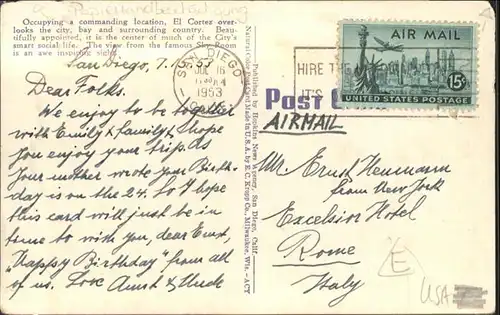 Occupying a commanding location, El Cortez over-
looks the city, bay and surrounding country. Beau-
tifully appointed, it is the center of much of the City's
smart social life. The view from the famous Sky Room
is an awe inspiring sight.
San Diego, 7.15.53
Dear Folks.
We enjoy to be together
with Emily & family & hope
you enjoy your trip. As
your mother wrote your Birth-
day is on the 24. so I hope
this card will just be in
time to wish you, dear Ernst,
"Happy Birthday" from all
of us. Love Aunt & Uncle
Published by Hopkins News Agency, San Diego, Calif.
Natural Color Post Card Made in U.S.A. by E. C. Kropp Co., Milwaukee, Wis. - ACY
SAN DIEGO
JUL 16
1953
HIRE THE
IT'S
AIR MAIL
15¢
UNITED STATES POSTAGE
Post
AIRMAIL
Mr. Ernst Heumann
from New York
Excelsior Hotel
Rome
Italy
E
USA